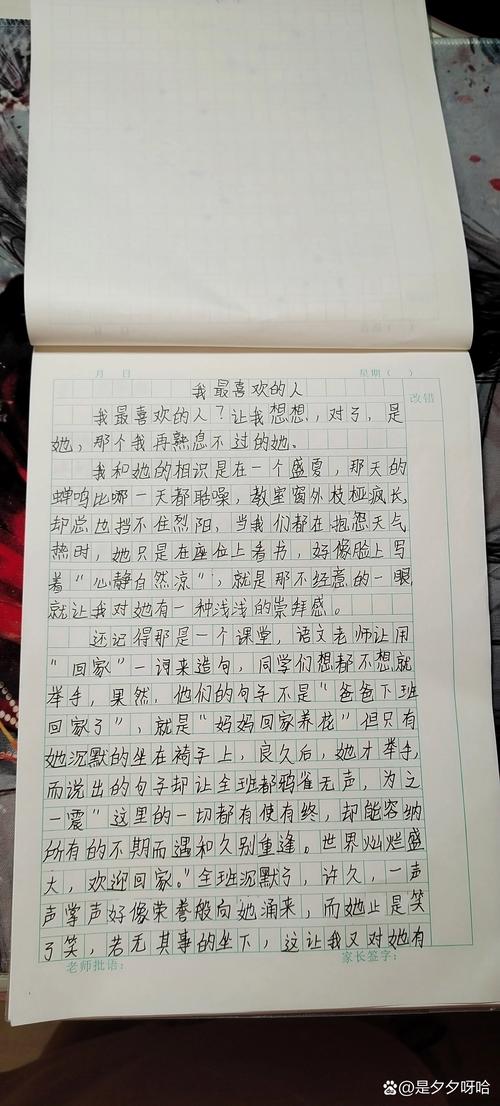 月 日 星期（ ）
我最喜欢的人
改错
我最喜欢的人？让我想想，对了，是
她，那个我再熟息不过的她、
我和她的相识是在一个盛夏，那天的
蝉鸣比哪一天都聒噪，教室窗外枝桠疯长，
却总也挡不住烈阳，当我们都在抱怨天气
热时，她只是在座位上看书，好像脸上写
着“心静自然凉”，就是那不经意的一眼，
就让我对她有一种浅浅的崇拜感。
还记得那是一个课堂，语文老师让用
“回家”一词来造句，同学们想都不想就
举手，果然，他们的句子不是“爸爸下班
回家了”，就是“妈妈回家养花”但只有
她沉默的坐在椅子上，良久后，她才举手，
而说出的句子却让全班都鸦雀无声，为之
一震“这里的一切都有使有终，却能容纳
所有的不期而遇和久别重逢。世界灿烂盛
大，欢迎回家。”全班沉默了，许久，一声
声掌声好像荣誉般向她涌来，而她止是笑
了笑，若无其事的坐下，这让我又对她有
老师批语： 家长签字：
@是夕夕呀哈